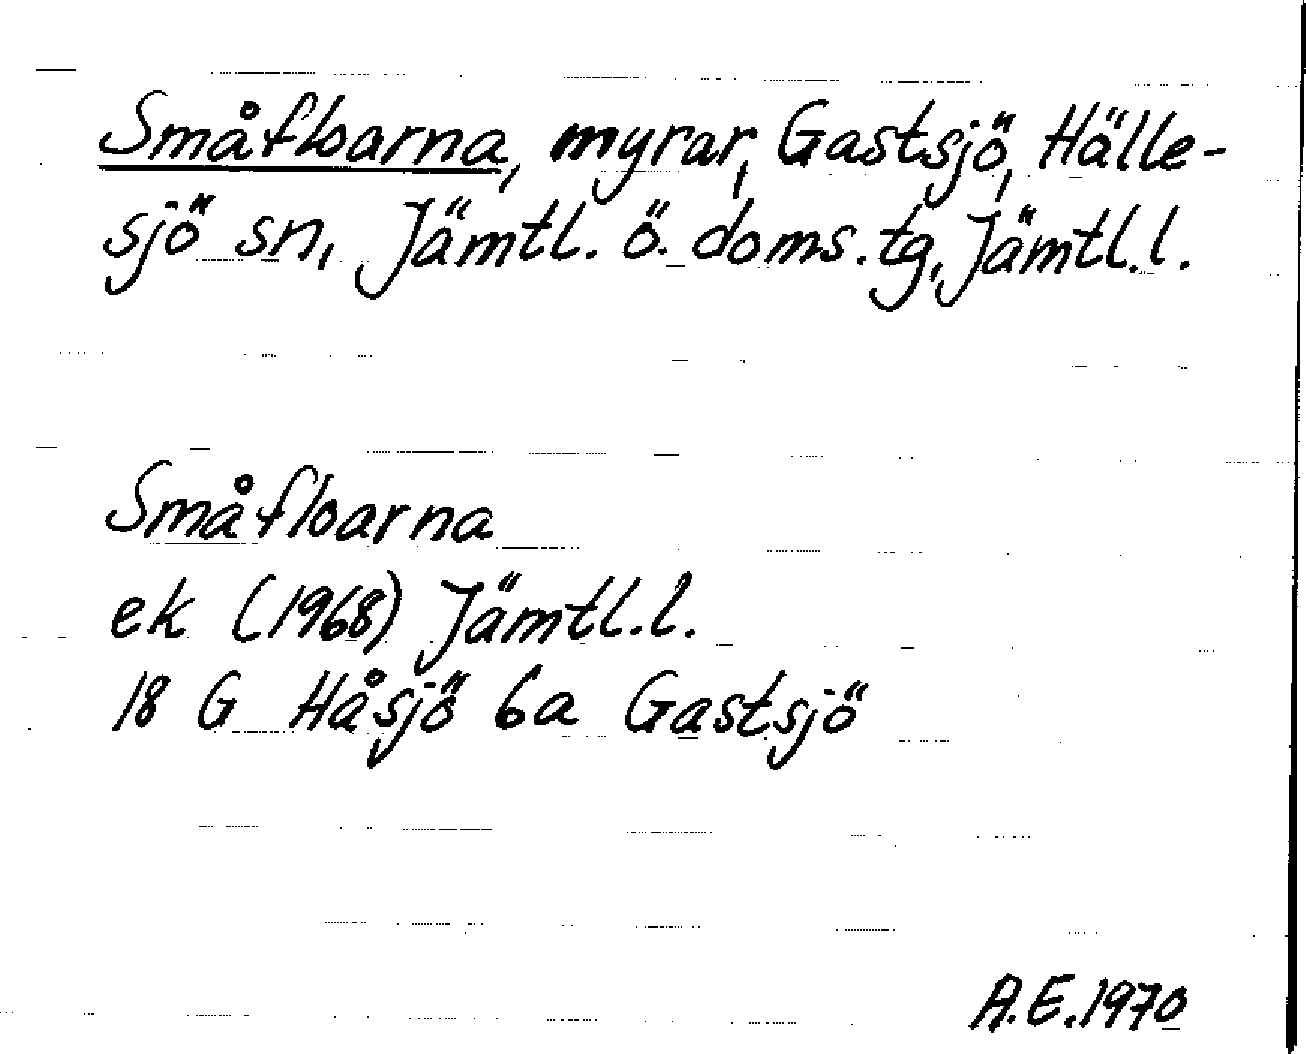 Småfloarna, myrar, Gastsjö, Hälle-
sjö sn, Jämtl. ö. doms. tg, Jämtl.l.
Småfloarna
ek (1968) Jämtl.l.
18 G Håsjö 6a Gastsjö
A.E.1970